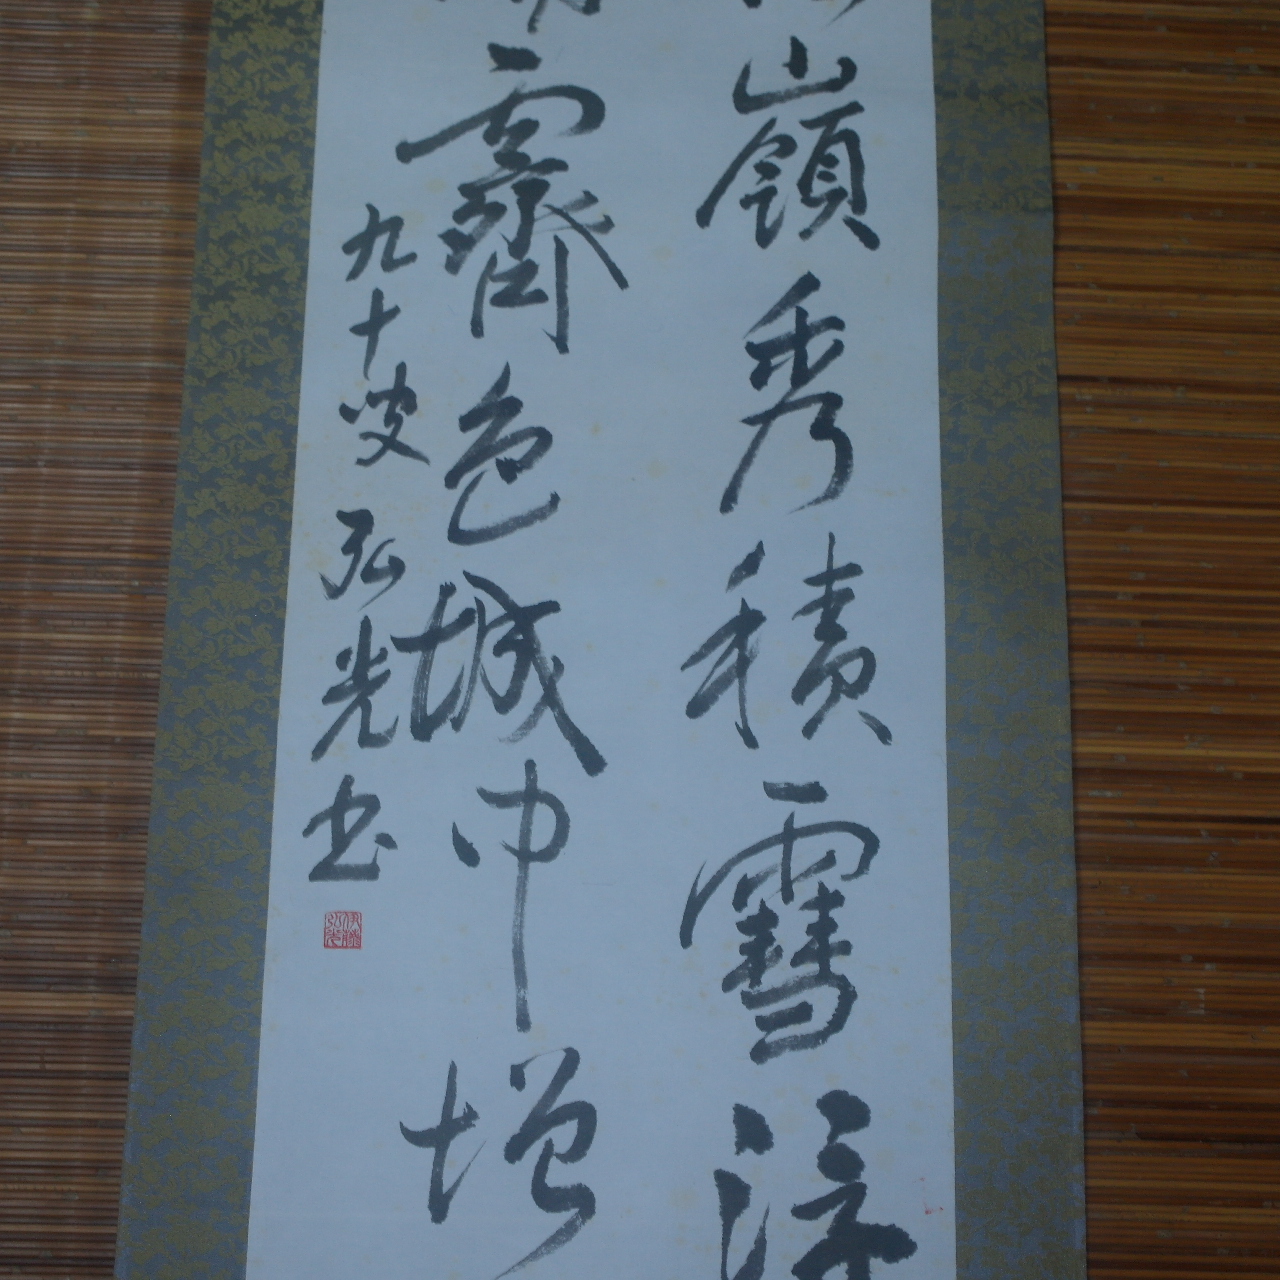 嶺秀積雪浮
霽色城中增
九十叟弘光书